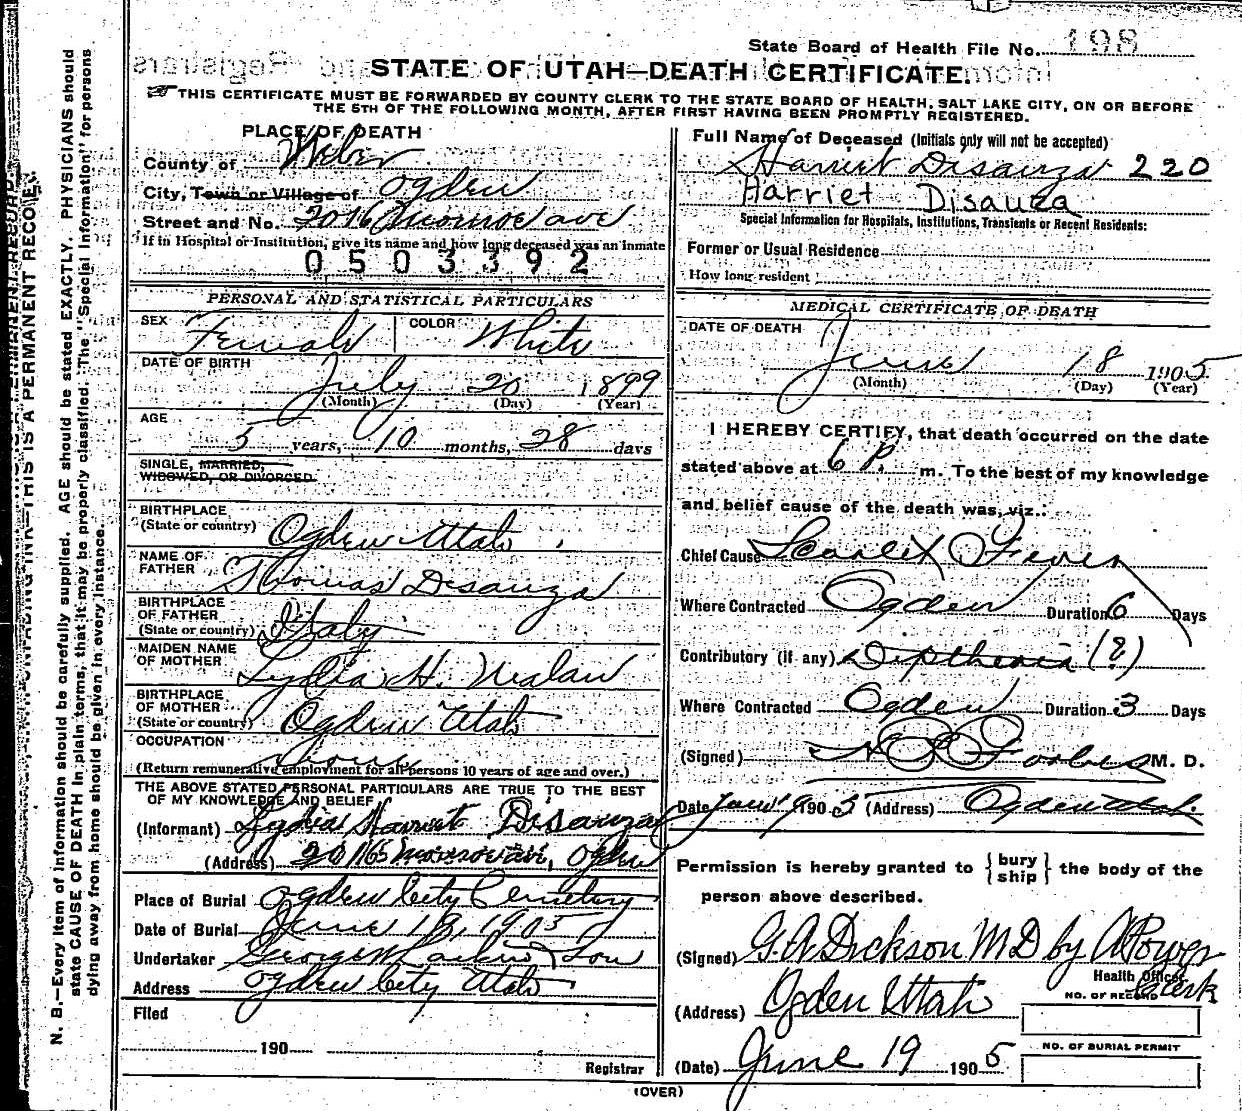 State Board of Health File No. 198
STATE OF UTAH—DEATH CERTIFICATE.
THIS CERTIFICATE MUST BE FORWARDED BY COUNTY CLERK TO THE STATE BOARD OF HEALTH, SALT LAKE CITY, ON OR BEFORE
THE 5TH OF THE FOLLOWING MONTH, AFTER FIRST HAVING BEEN PROMPTLY REGISTERED.
PLACE OF DEATH
County of Weber
City, Town or Village of Ogden
Street and No. 2016 Monroe ave
If in Hospital or Institution, give its name and how long deceased was an inmate
0503392
PERSONAL AND STATISTICAL PARTICULARS
SEX Female COLOR White
DATE OF BIRTH
July 20 1899
(Month) (Day) (Year)
AGE
5 years, 10 months, 28 days
SINGLE, MARRIED,
WIDOWED, OR DIVORCED.
BIRTHPLACE
(State or country) Ogden Utah
NAME OF
FATHER Thomas Disauza
BIRTHPLACE
OF FATHER
(State or country) Italy
MAIDEN NAME
OF MOTHER Lydia H.
BIRTHPLACE
OF MOTHER
(State or country) Ogden Utah
OCCUPATION
None
(Return remunerative employment for all persons 10 years of age and over.)
THE ABOVE STATED PERSONAL PARTICULARS ARE TRUE TO THE BEST
OF MY KNOWLEDGE AND BELIEF
(Informant) Lydia Harriet Disauza
(Address) 2016 Monroe ave, Ogden
Place of Burial Ogden City Cemetery
Date of Burial June 18, 1905
Undertaker George W Larkin & Son
Address Ogden City Utah
Filed
190
Registrar
Full Name of Deceased (Initials only will not be accepted)
Harriet Disauza 220
Harriet Disauza
Special Information for Hospitals, Institutions, Transients or Recent Residents:
Former or Usual Residence
How long resident
MEDICAL CERTIFICATE OF DEATH
DATE OF DEATH
June 18 1905
(Month) (Day) (Year)
I HEREBY CERTIFY, that death occurred on the date
stated above at 6 P. m. To the best of my knowledge
and belief cause of the death was, viz.:
Chief Cause Scarlet Fever
Where Contracted Ogden Duration 6 Days
Contributory (if any) Diptheria (?)
Where Contracted Ogden Duration 3 Days
(Signed) Forbes M. D.
Date June 19 1905 (Address) Ogden Utah.
Permission is hereby granted to { bury ship } the body of the
person above described.
(Signed) G. A. Dickson M D by A Powers
Health Officer.
Clerk
(Address) Ogden Utah
NO. OF RECORD
(Date) June 19 1905
NO. OF BURIAL PERMIT
(OVER)
N. B.—Every item of information should be carefully supplied. AGE should be stated EXACTLY. PHYSICIANS should
state CAUSE OF DEATH in plain terms, that it may be properly classified. The "Special Information" for persons
dying away from home should be given in every instance.
THIS IS A PERMANENT RECORD.